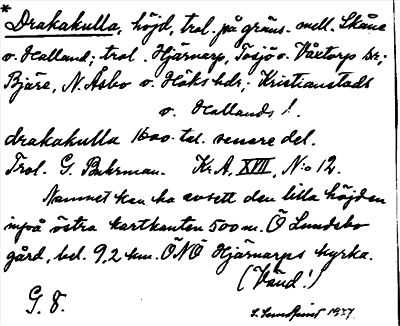 * Drakakulla, höjd, trol. på gräns. mell. Skåne
o. Halland; trol. Hjärnarp, Tosjö o. Våxtorp sr;
Bjäre, N. Åsbo o. Höks hdr; Kristianstads
o. Hallands l.
drakakulla 1600-tal. senare del.
Trol. G. Buhrman. Kr. A. XVII, N:o 12.
Namnet kan ha avsett den lilla höjden
inpå östra kartkanten 500 m. Ö Lundsbo
gård, bel. 9,2 km. ÖNÖ Hjärnarps kyrka.
(Vänd!)
G. 8.
1927.